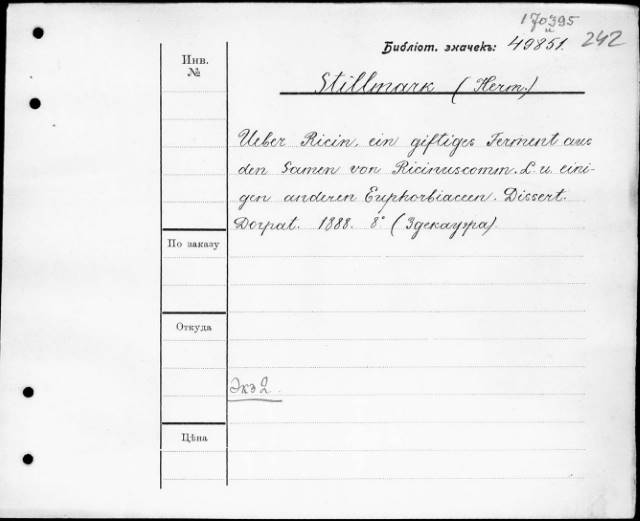 170395
и
Библіот. значекъ: 49851. 242
Инв.
№
Stillmark (Herm.)
Ueber Ricin, ein giftiges Ferment aus
den Samen von Ricinus comm. L. u. eini-
gen anderen Euphorbiaceen. Dissert.
Dorpat. 1888. 8° (Здекауэра).
По заказу
Откуда
Экз 2.
Цѣна